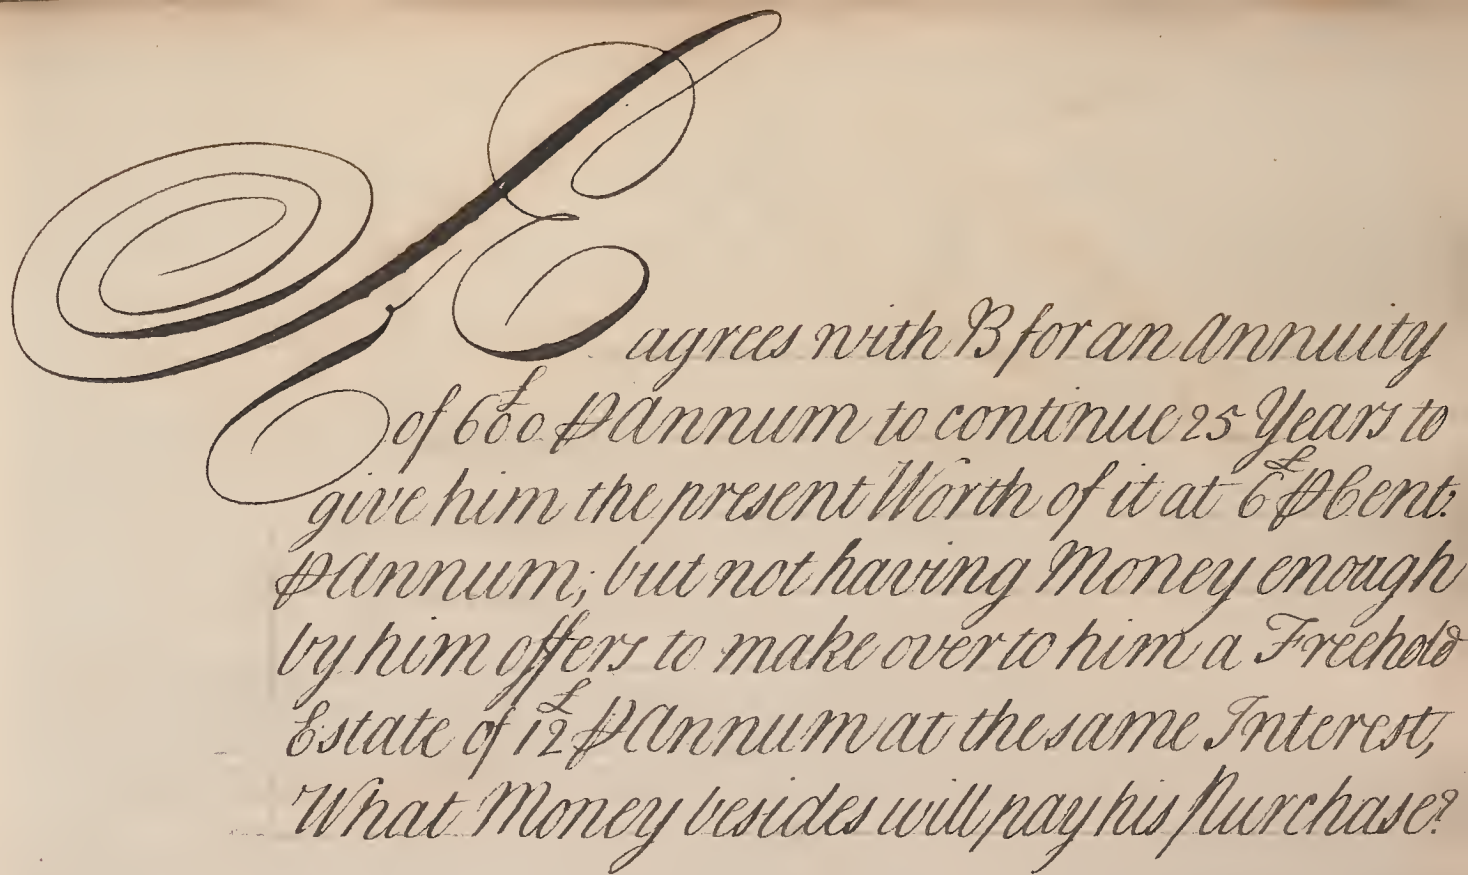 E agrees with B for an Annuity
of 600£ ⅌ Annum to continue 25 Years to
give him the present Worth of it at 6£ ⅌ Cent:
⅌ Annum; but not having Money enough
by him offers to make over to him a Freehold
Estate of 12£ ⅌ Annum at the same Interest,
What Money besides will pay his Purchase?